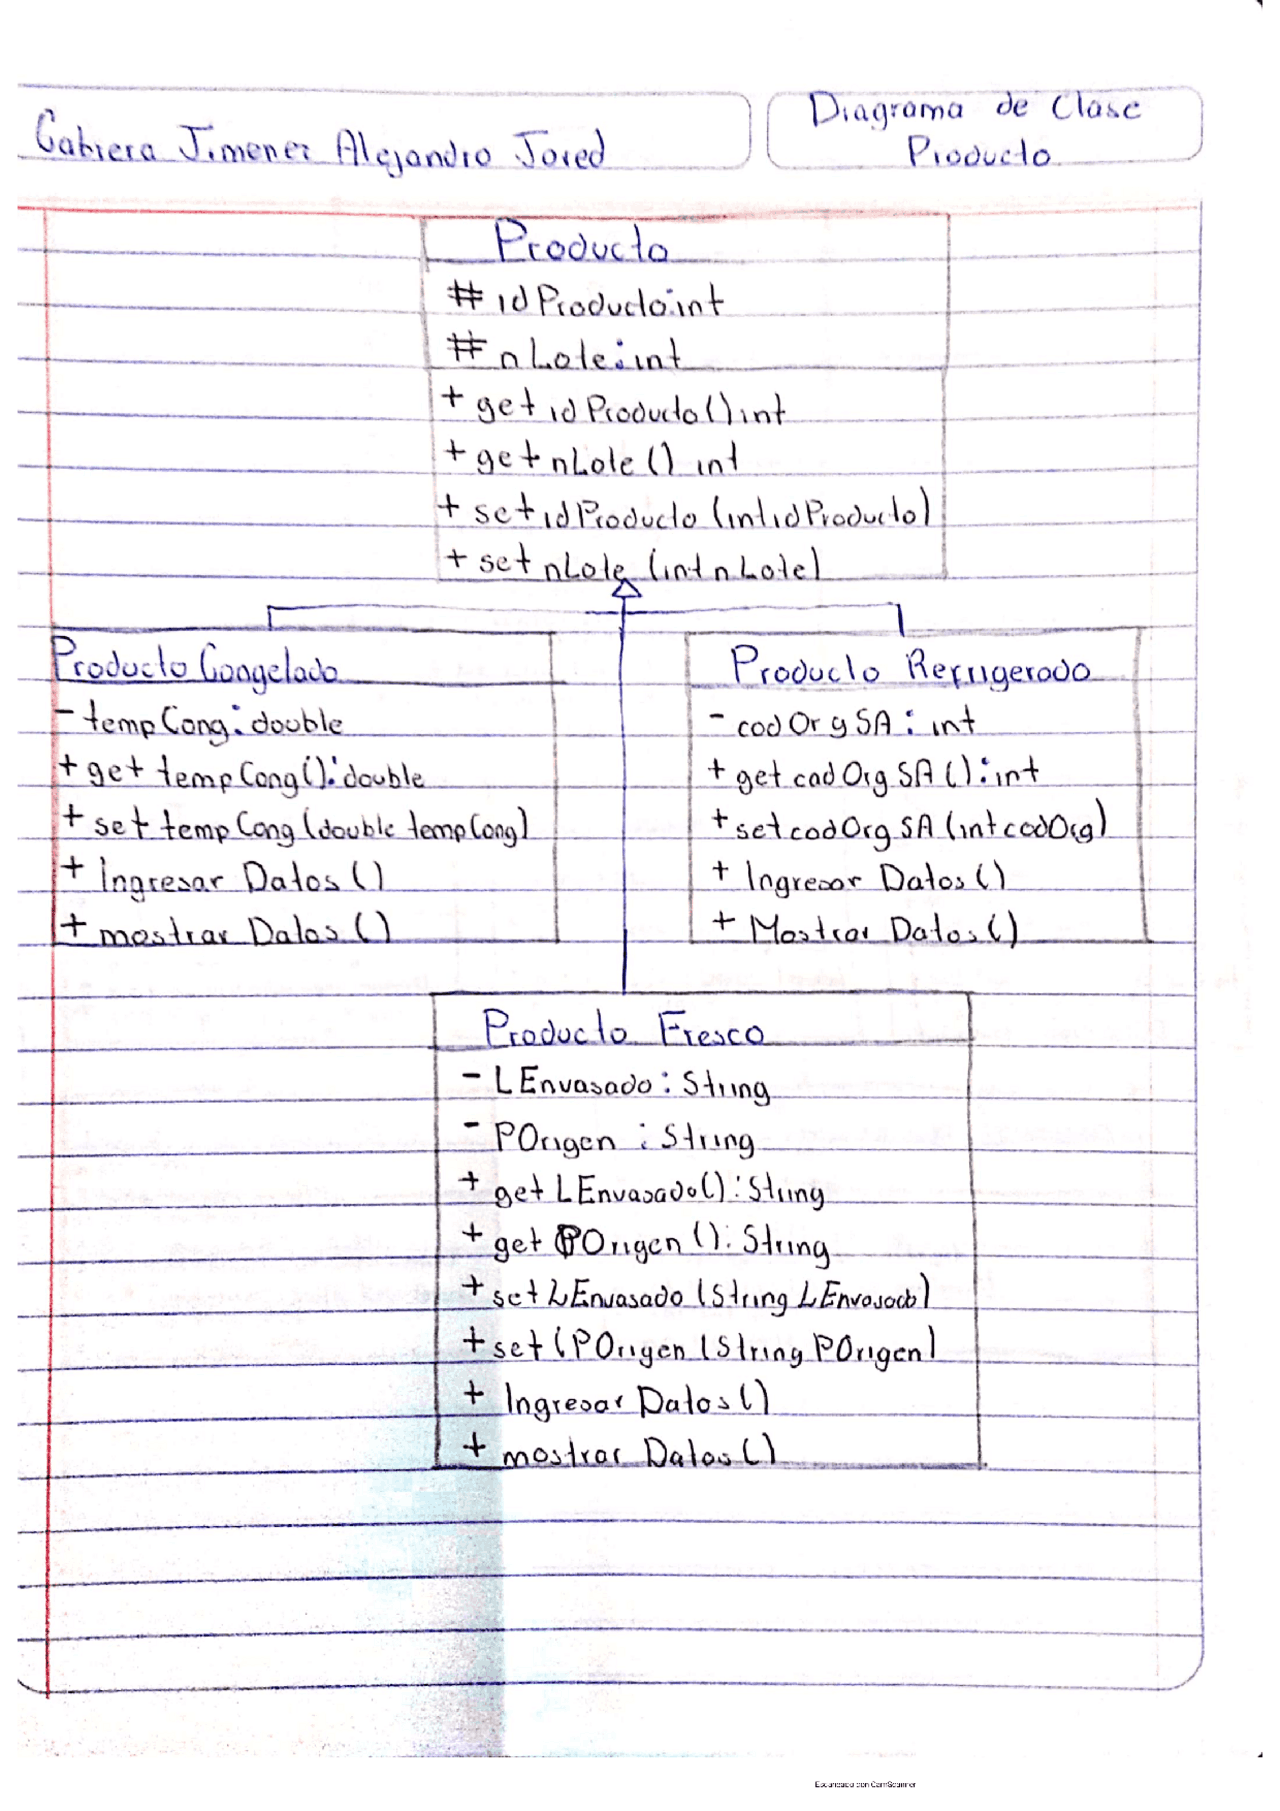 Cabrera Jimenez Alejandro Jared
Diagrama de Clase
Producto
Producto
# idProducto:int
# nLote:int
+ get idProducto() int
+ get nLote () int
+ set idProducto (int idProducto)
+ set nLote (int nLote)
Producto Congelado
- temp Cong: double
+ get temp Cong(): double
+ set temp Cong (double temp Cong)
+ Ingresar Datos ()
+ mostrar Datos ()
Producto Refrigerado
- cod Org SA : int
+ get cod Org SA () : int
+ set cod Org SA (int cod Org)
+ Ingresar Datos ()
+ Mostrar Datos ()
Producto Fresco
- LEnvasado : String
- POrigen : String
+ get LEnvasado() : String
+ get POrigen () : String
+ set LEnvasado (String LEnvasado)
+ set (POrigen (String POrigen)
+ Ingresar Datos ()
+ mostrar Datos ()
Escaneado con CamScanner